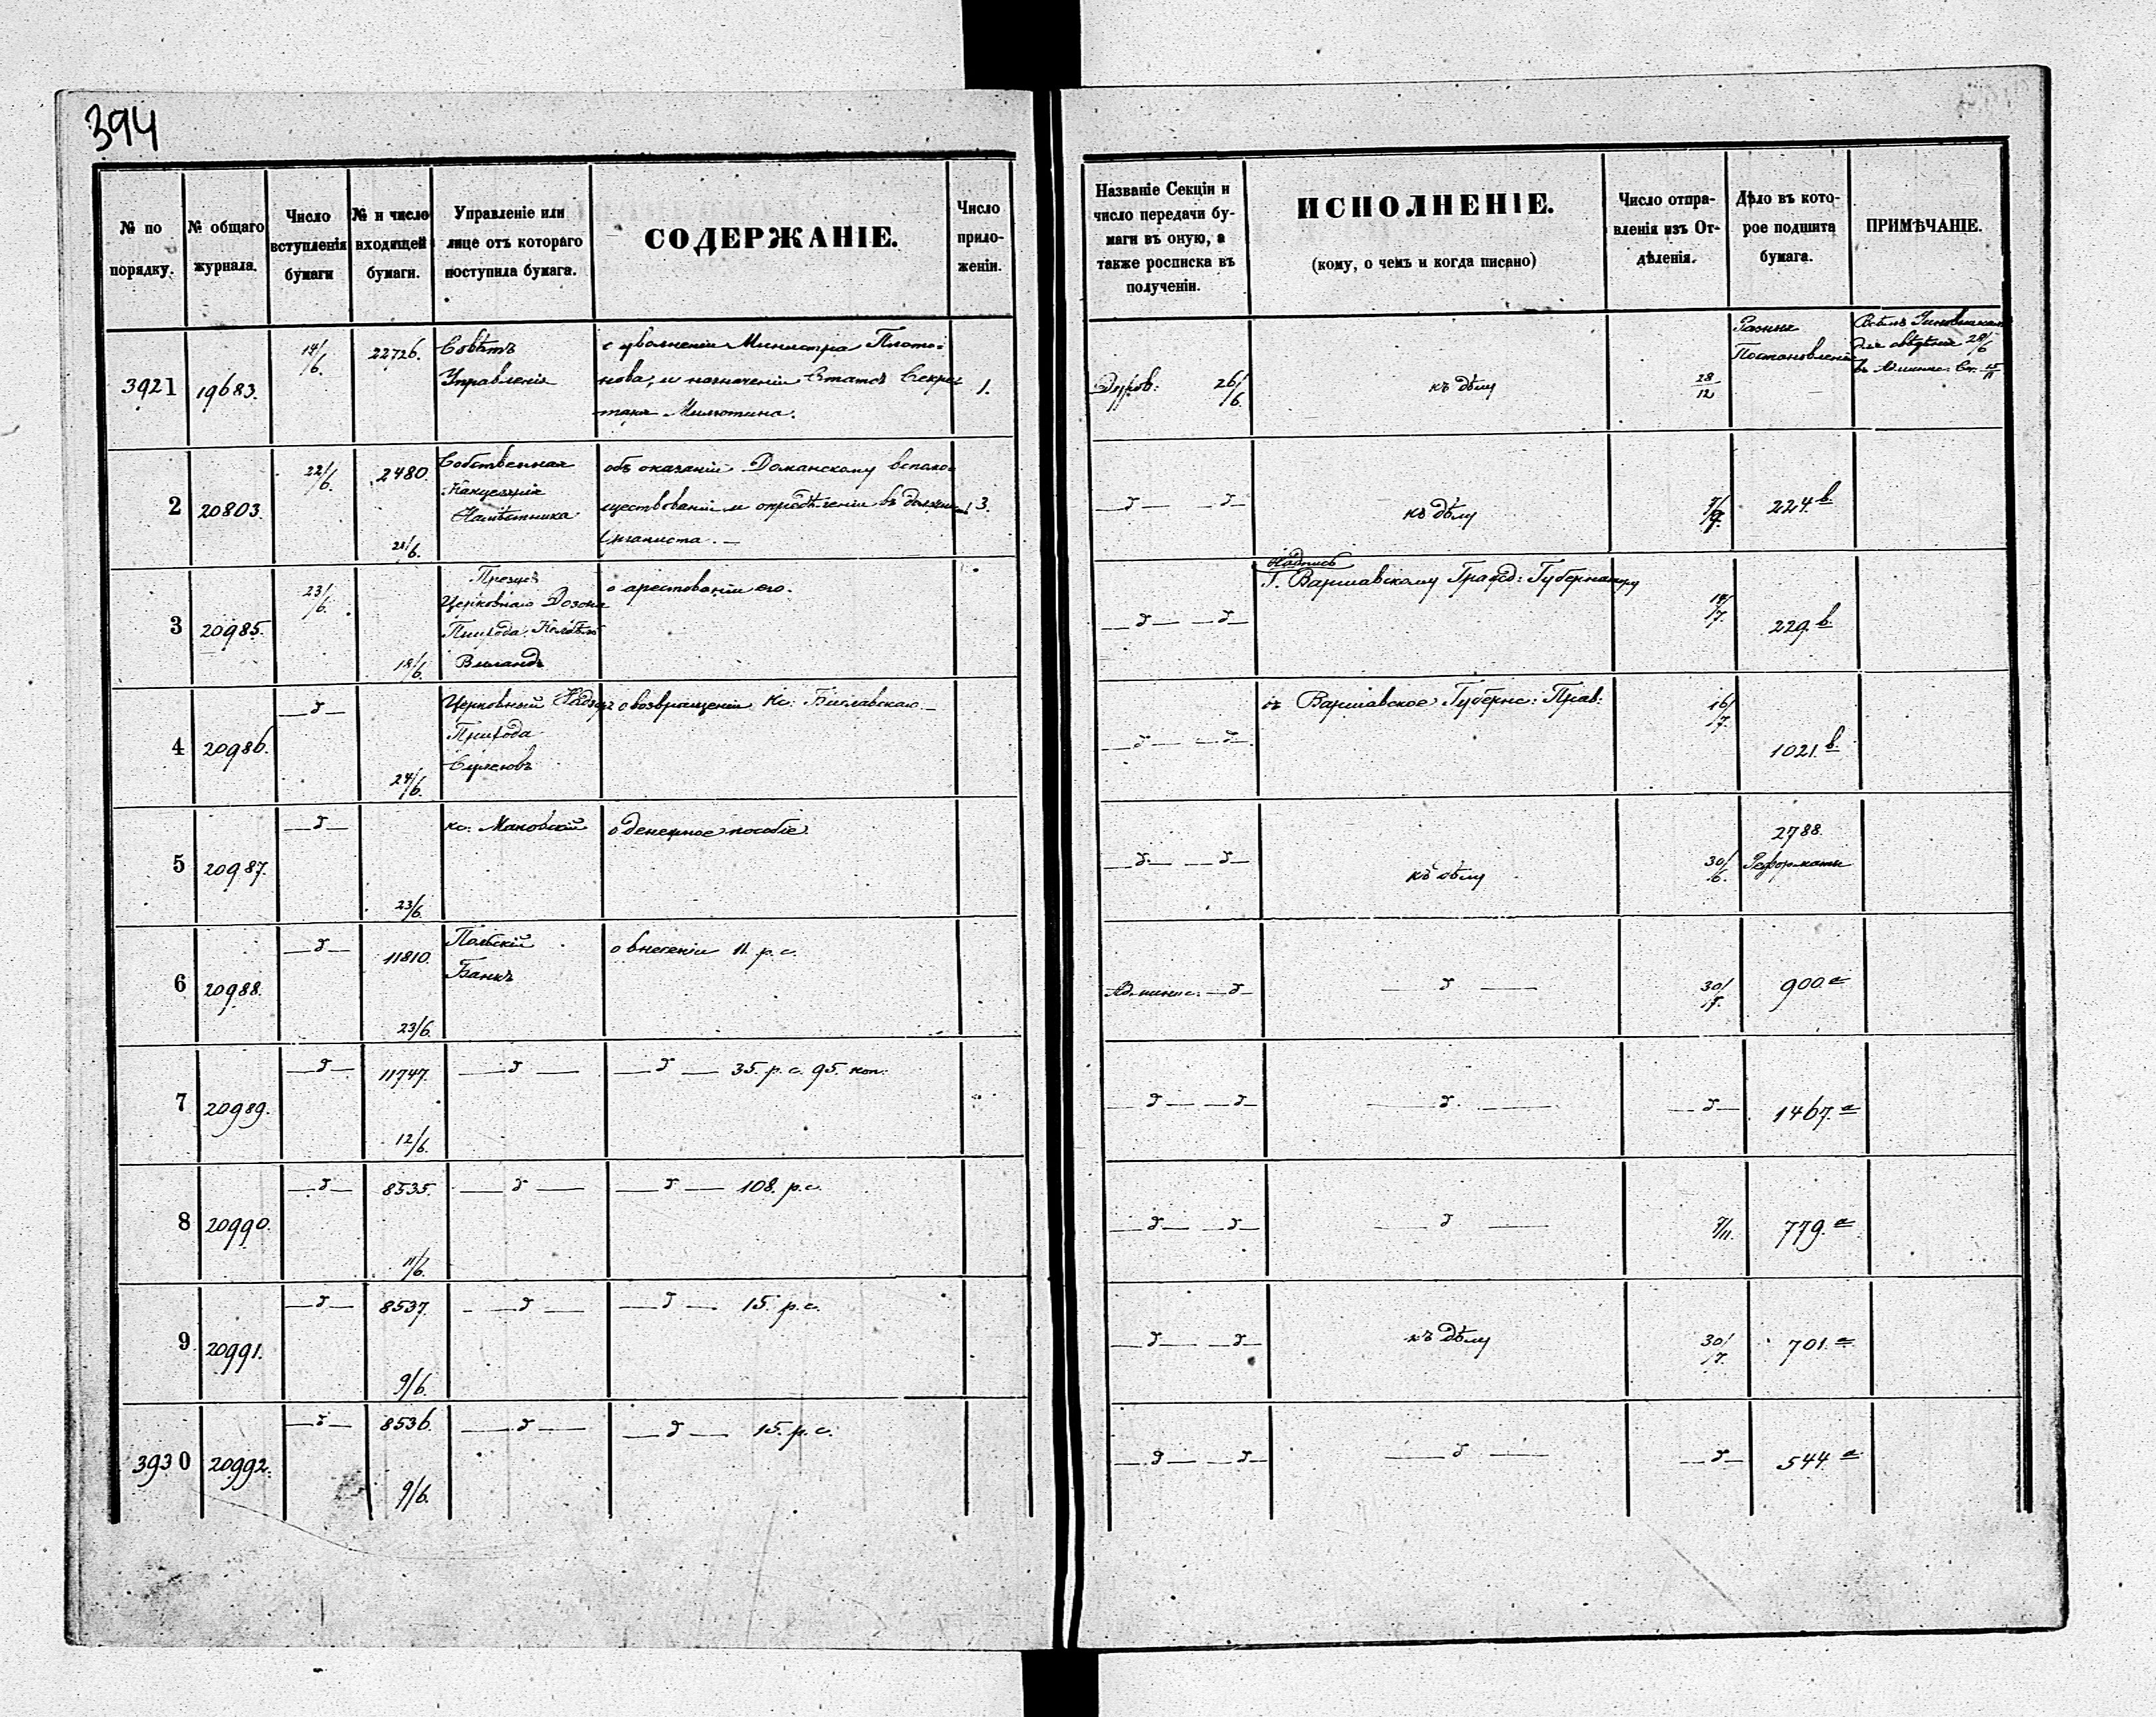 394
№ по
порядку.
№ общаго
журнала.
Число
вступленія
бумаги
№ и число
входящей
бумаги.
Управленіе или
лице отъ котораго
поступила бумага.
СОДЕРЖАНІЕ.
Число
прило-
женіи.
Названіе Секціи и
число передачи бу-
маги въ оную, а
также росписка въ
полученіи.
ИСПОЛНЕНІЕ.
(кому, о чемъ и когда писано)
Число отпра-
вленія изъ От-
дѣленія.
Дѣло въ кото-
рое подшита
бумага.
ПРИМѢЧАНІЕ.
3921
19683.
14/6.
22726.
Совѣтъ
Управленія
о увольненіи Министра Плато=
нова, и назначеніи Статсъ Секре=
таря Милютина.
1.
26/6.
къ дѣлу
28/12
Разныя
Постановленія
28/6
2
20803.
22/6.
2480.
21/6.
Собственная
Канцелярія
Намѣстника
объ оказаніи Доманскому вспомо=
ществованіи и опредѣленіи въ должность
Органиста. —
3.
— δ — — δ —
къ дѣлу
7/9.
224. в.
3
20985.
23/6.
18/6.
Церковнаго Дозора
Прихода
о арестованіи его.
— δ — — δ —
Надпись
Г. Варшавскому Гражд: Губернатору
229. в.
4
20986.
— δ —
24/6.
Церковный
Прихода
о возвращеніи Кс:
— δ — — δ —
въ Варшавское Губернс: Прав:
16/7.
1021. в.
5
20987.
— δ —
23/6.
кс: Маковскій
о денежное пособіе.
— δ — — δ —
къ дѣлу
30/6.
2788.
Реформаты
6
20988.
— δ —
11810.
23/6.
Польскій
Банкъ
о внесеніи 11. р. с.
Админис: — δ —
— δ —
30/7.
900. а
7
20989.
— δ —
11747.
12/6.
— δ —
— δ — 35. р. с. 95. коп.
— δ — — δ —
— δ —
— δ —
1467. а
8
20990.
— δ —
8535.
— δ —
— δ — 108. р. с.
— δ — — δ —
— δ —
7/11.
779. а
9
20991.
— δ —
8537.
9/6.
— δ —
— δ — 15. р. с.
— δ — — δ —
къ дѣлу
30/7.
701. а
3930
20992.
— δ —
8536.
9/6.
— δ —
— δ — 15. р. с.
— δ — — δ —
— δ —
— δ —
544. а